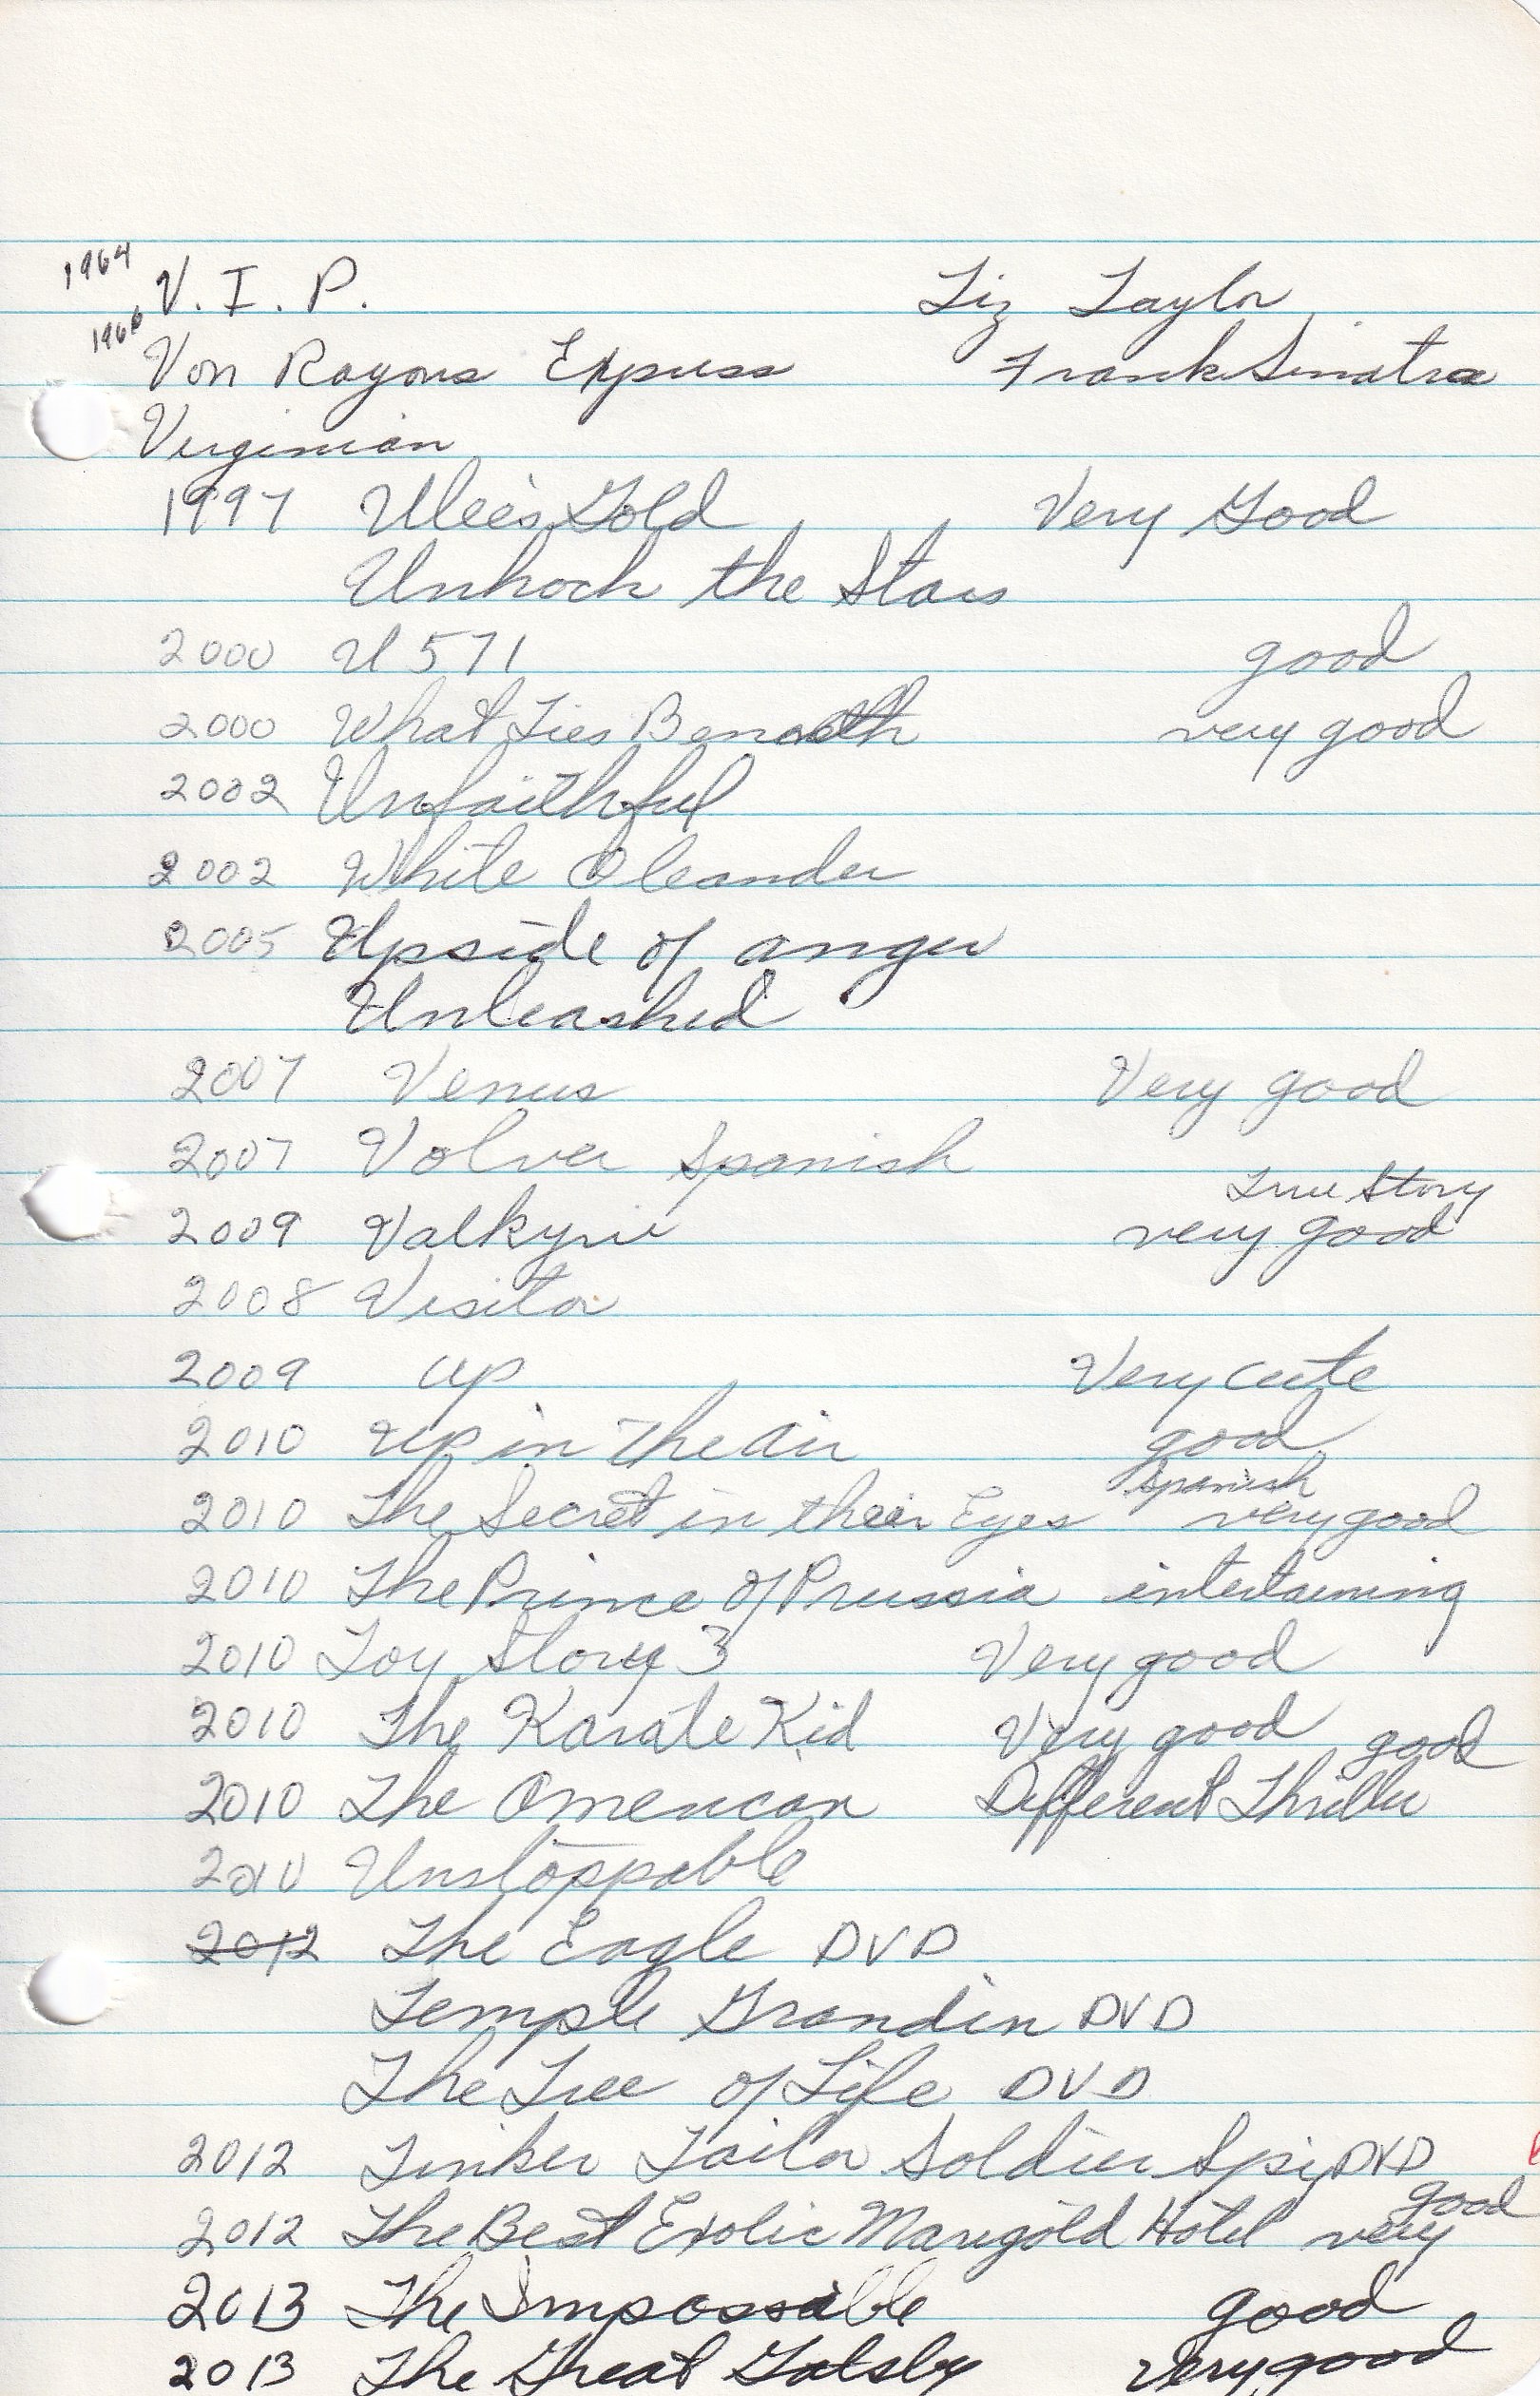 1964 V. I. P. Liz Taylor
1966 Von Rayons Express Frank Sinatra
Virginian
1997 Ulee's Gold Very Good
Unhook the Stars
2000 U 571 good
2000 What Lies Beneath very good
2002 Unfaithful
2002 White Oleander
2005 Upside of anger
Unleashed
2007 Venus Very good
2007 Volver Spanish
True Story
2009 Valkyrie very good
2008 Visitor
2009 Up Very cute
2010 Up in The Air good
Spanish
2010 The Secret in their Eyes very good
2010 The Prince of Prussia intertaining
2010 Toy Story 3 Very good
2010 The Karate Kid Very good
good
2010 The American Different Thriller
2010 Unstoppable
2012 The Eagle DVD
Temple Grandin DVD
The Tree of Life DVD
2012 Tinker Tailor Soldier Spy DVD
good
2012 The Best Exotic Marigold Hotel very
2013 The Impossible good
2013 The Great Gatsby very good